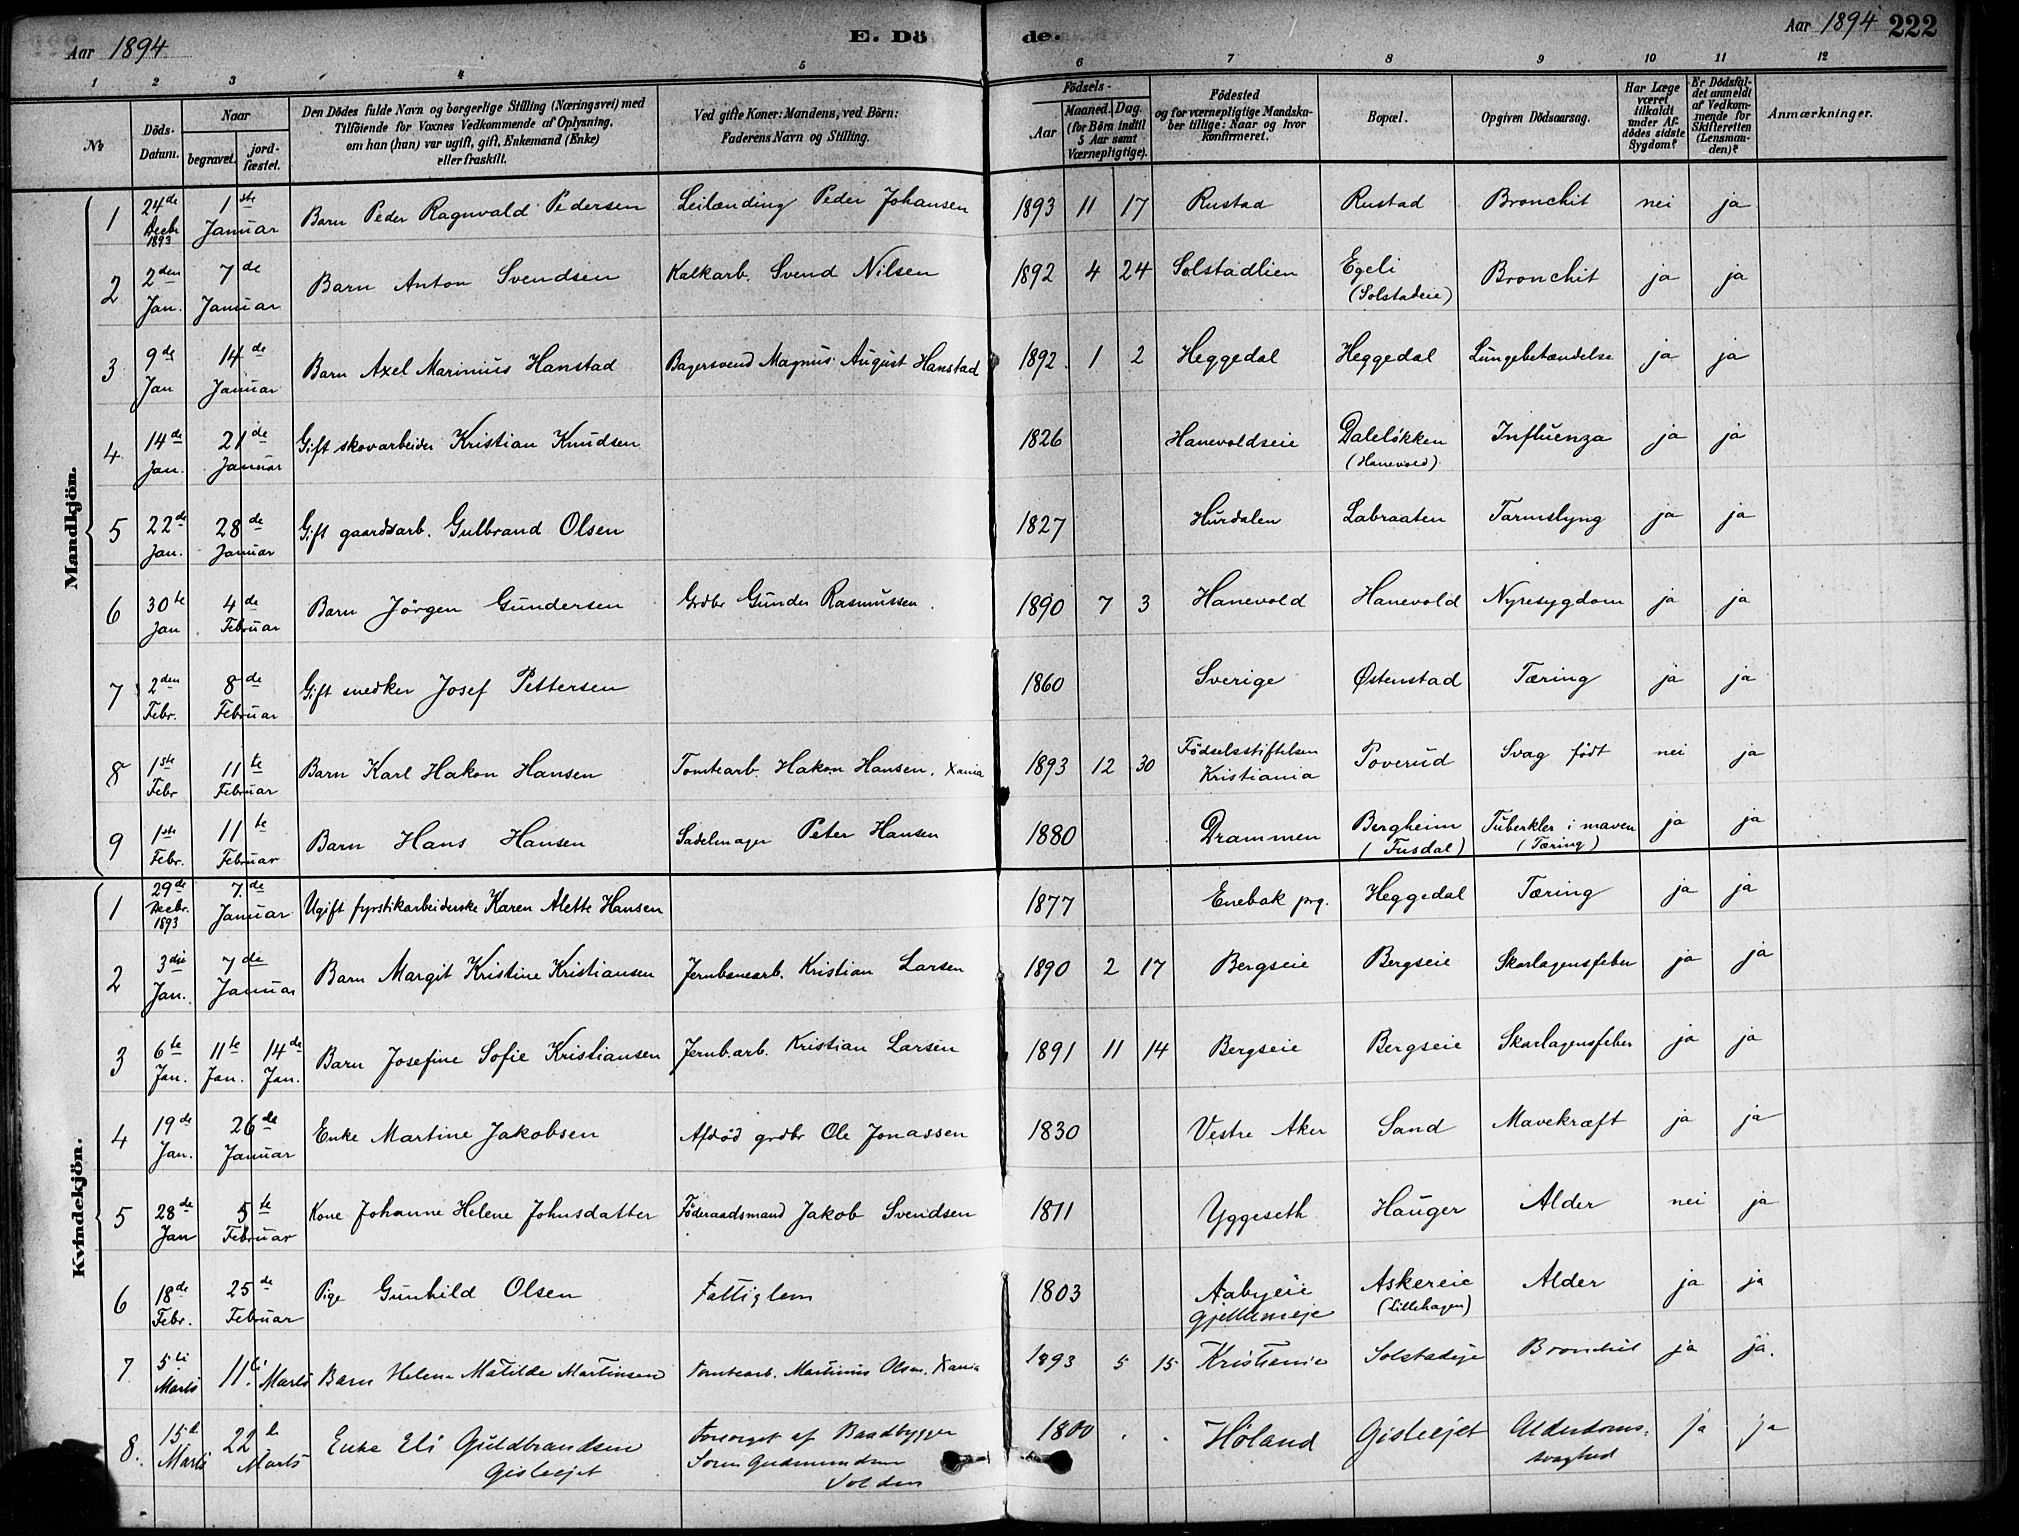 Aar 1894 E. Dö de. Aar 1894 222
1 2 3 4 5 6 7 8 9 10 11 12
№ | Döds-Datum. | Naar begravet. | jordfæstet. | Den Dödes fulde Navn og borgerlige Stilling (Næringsvei) med Tilföiende for Voxnes Vedkommende af Oplysning, om han (hun) var ugift, gift, Enkemand (Enke) eller fraskilt. | Ved gifte Koner: Mandens, ved Börn: Faderens Navn og Stilling. | Födsels- Aar | Maaned. | Dag. (for Börn indtil 5 Aar samt Værnepligtige). | Födested og for værnepligtige Mandskaber tillige: Naar og hvor Konfirmeret. | Bopæl. | Opgiven Dödsaarsag. | Har Læge været tilkaldt under Afdödes sidste Sygdom? | Er Dödsfaldet anmeldt af Vedkommende for Skifteretten (Lensmanden)? | Anmærkninger.
Mandkjön.
1 | 24de Decbr 1893 | 1ste Januar | Barn Peder Ragnvald Pedersen | Leilænding Peder Johansen | 1893 | 11 | 17 | Rustad | Rustad | Bronchit | nei | ja
2 | 2den Jan. | 7de Januar | Barn Anton Svendsen | Kalkarb. Svend Nilsen | 1892 | 4 | 24 | Solstadlien | Egeli (Solstadeie) | Bronchit | ja | ja
3 | 9de Jan | 14de Januar | Barn Axel Marinius Hanstad | Bagersvend Magnus August Hanstad | 1892. | 1 | 2 | Heggedal | Heggedal | Lungebetændelse | ja | ja
4 | 14de Jan. | 21de Januar | Gift skovarbeider Kristian Knudsen | 1826 | Hanevoldseie | Daleløkken (Hanevold) | Influenza | ja | ja
5 | 22de Jan. | 28de Januar | Gift gaardsarb. Gulbrand Olsen | 1827 | Hurdalen | Labraaten | Tarmslyng | ja | ja
6 | 30te Jan | 4de Februar | Barn Jörgen Gundersen | Grdbr Gunder Rasmussen. | 1890 | 7 | 3 | Hanevold | Hanevold | Nyresygdom | ja | ja
7 | 2den Febr. | 8de Februar | Gift snedker Josef Pettersen | 1860 | Sverige | Østenstad | Tæring | ja | ja
8 | 1ste Febr | 11te Februar | Barn Karl Hakon Hansen | Tomtearb. Hakon Hansen. Xania | 1893 | 12 | 30 | Födselsstiftelsen Kristiania | Poverud | Svag født | nei | ja
9 | 1ste Febr. | 11te Februar | Barn Hans Hansen | Sadelmager Peter Hansen | 1880 | Drammen | Bergheim (Fusdal) | Tuberkler i maven (Tæring) | ja | ja
Kvindekjön.
1 | 29de Decbr. 1893 | 7.de Januar | Ugift fyrstikarbeiderske Karen Alette Hansen | 1877 | Enebak prg. | Heggedal | Tæring | ja | ja
2 | 3die Jan. | 7de Januar | Barn Margit Kristine Kristiansen | Jernbanearb. Kristian Larsen | 1890 | 2 | 17 | Bergseie | Bergseie | Skarlagensfeber | ja | ja
3 | 6te Jan. | 11te Jan. | 14de Jan. | Barn Josefine Sofie Kristiansen | Jernb.arb. Kristian Larsen | 1891 | 11 | 14 | Bergseie | Bergseie | Skarlagensfeber | ja | ja
4 | 19de Jan. | 26de Januar | Enke Martine Jakobsen | Afdød grdbr Ole Jonassen | 1830 | Vestre Aker | Sand | Mavekræft | ja | ja
5 | 28de Jan | 5te Februar | Kone Johanne Helene Johnsdatter | Föderaadsmand Jakob Svendsen | 1811 | Yggeseth | Hauger | Alder | nei | ja
6 | 18de Febr. | 25de Februar | Pige Gunhild Olsen | Fattiglem | 1803 | Aabyeie Gjellumeje | Askereie (Lillehagen) | Alder | ja | ja
7 | 5te Marts | 11te Marts | Barn Helene Matilde Martinsen | Tomtearb. Martinius Olsen. Xania | 1893 | 5 | 15 | Kristiania | Solstadeje | Bronchit | ja | ja.
8. | 15de Marts | 22de Marts | Enke Eli Guldbrandsen Gisleejet | Forsørget af Baadbygger Søren Gudmundsen Volden | 1800 | Høland | Gisleejet | Alderdomssvaghed | ja | ja